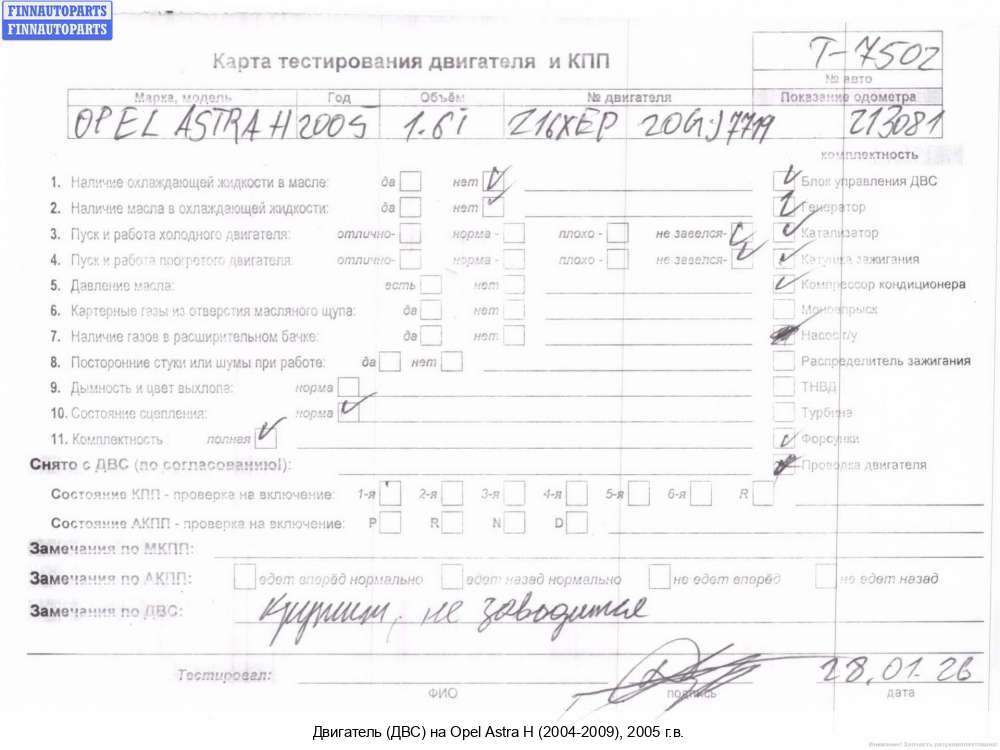 FINNAUTOPARTS
FINNAUTOPARTS
Т-7502
Карта тестирования двигателя и КПП
№ авто
Марка, модель Год Объём № двигателя Показание одометра
OPEL ASTRA H 2005 1.6i Z16XEP 20GJ7719 213081
комплектность
1. Наличие охлаждающей жидкости в масле: да нет Блок управления ДВС
2. Наличие масла в охлаждающей жидкости: да нет Генератор
3. Пуск и работа холодного двигателя: отлично- норма - плохо - не завелся- Катализатор
4. Пуск и работа прогретого двигателя: отлично- норма - плохо - не завелся- Катушка зажигания
5. Давление масла: есть нет Компрессор кондиционера
6. Картерные газы из отверстия масляного щупа: да нет Моновпрыск
7. Наличие газов в расширительном бачке: да нет Насос г/у
8. Посторонние стуки или шумы при работе: да нет Распределитель зажигания
9. Дымность и цвет выхлопа: норма ТНВД
10. Состояние сцепления: норма Турбина
11. Комплектность полная Форсунки
Снято с ДВС (по согласованию!): Проводка двигателя
Состояние КПП - проверка на включение: 1-я 2-я 3-я 4-я 5-я 6-я R
Состояние АКПП - проверка на включение: P R N D
Замечания по МКПП:
Замечания по АКПП: едет вперёд нормально едет назад нормально не едет вперёд не едет назад
Замечания по ДВС: крутит, не заводится
Тестировал: 28.01.26
ФИО подпись дата
Двигатель (ДВС) на Opel Astra H (2004-2009), 2005 г.в.